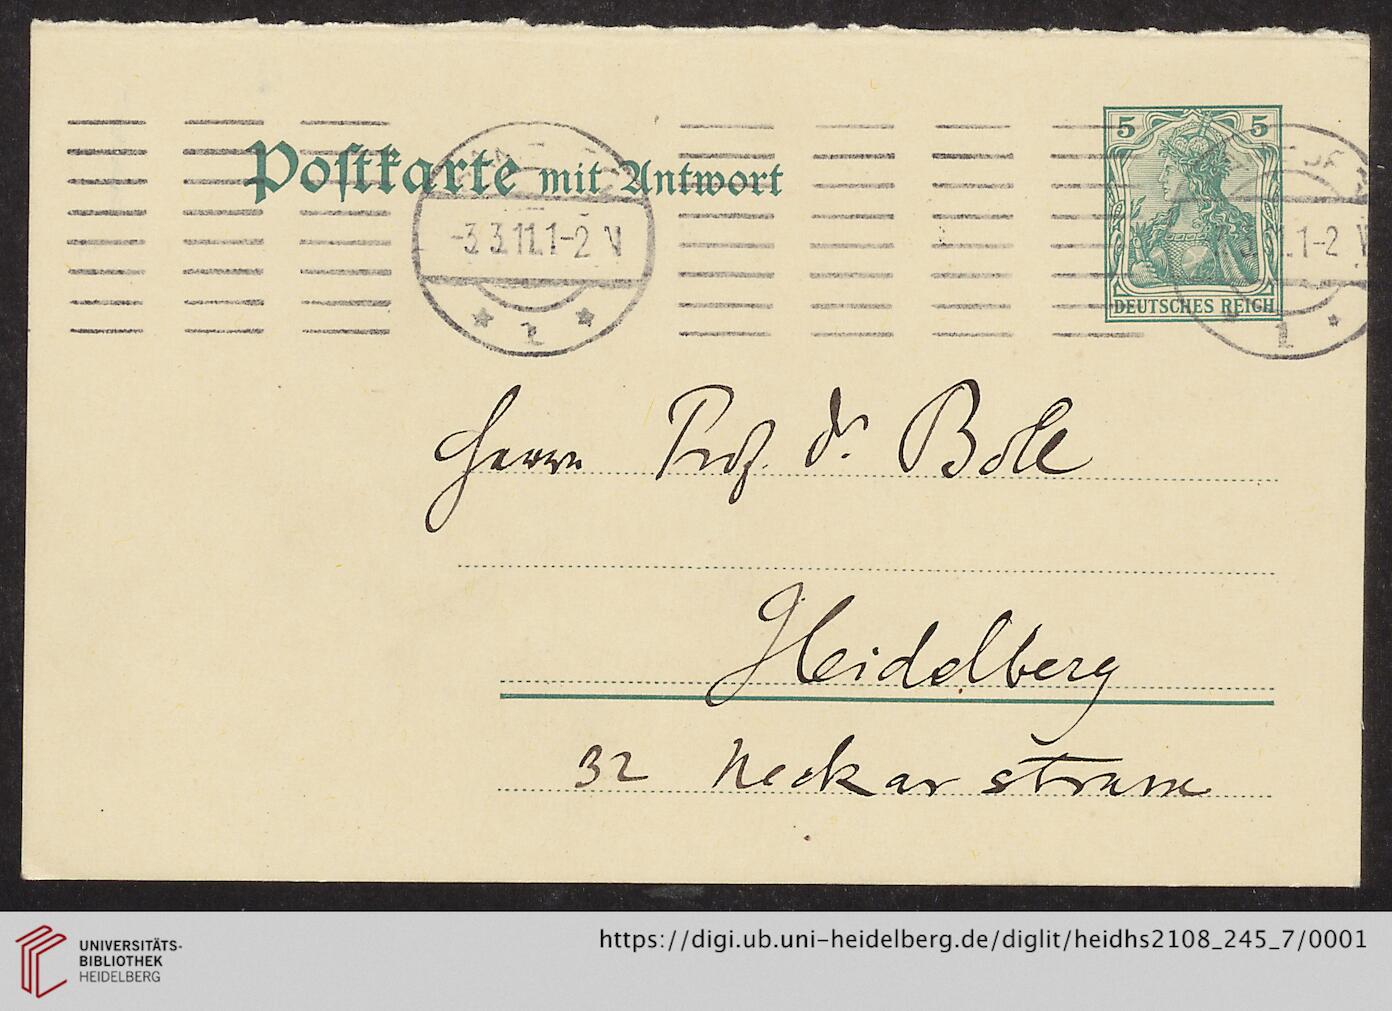 Postkarte mit Antwort
5 5
DEUTSCHES REICH
-3.3.11.1-2 V
1
1-2 V
1
Herrn Prof. Dr. Boll
Heidelberg
32 Neckarstrasse
UNIVERSITÄTS-
BIBLIOTHEK
HEIDELBERG
https://digi.ub.uni-heidelberg.de/diglit/heidhs2108_245_7/0001